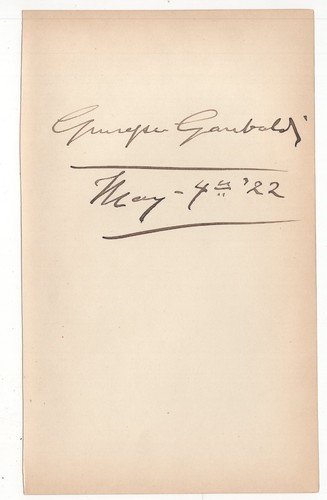 Giuseppe Garibaldi
May - 4th '22